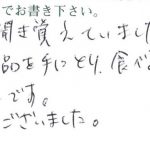 でお書き下さい。
聞き覚えていました
品を手にとり、食べ
です。
ございました。